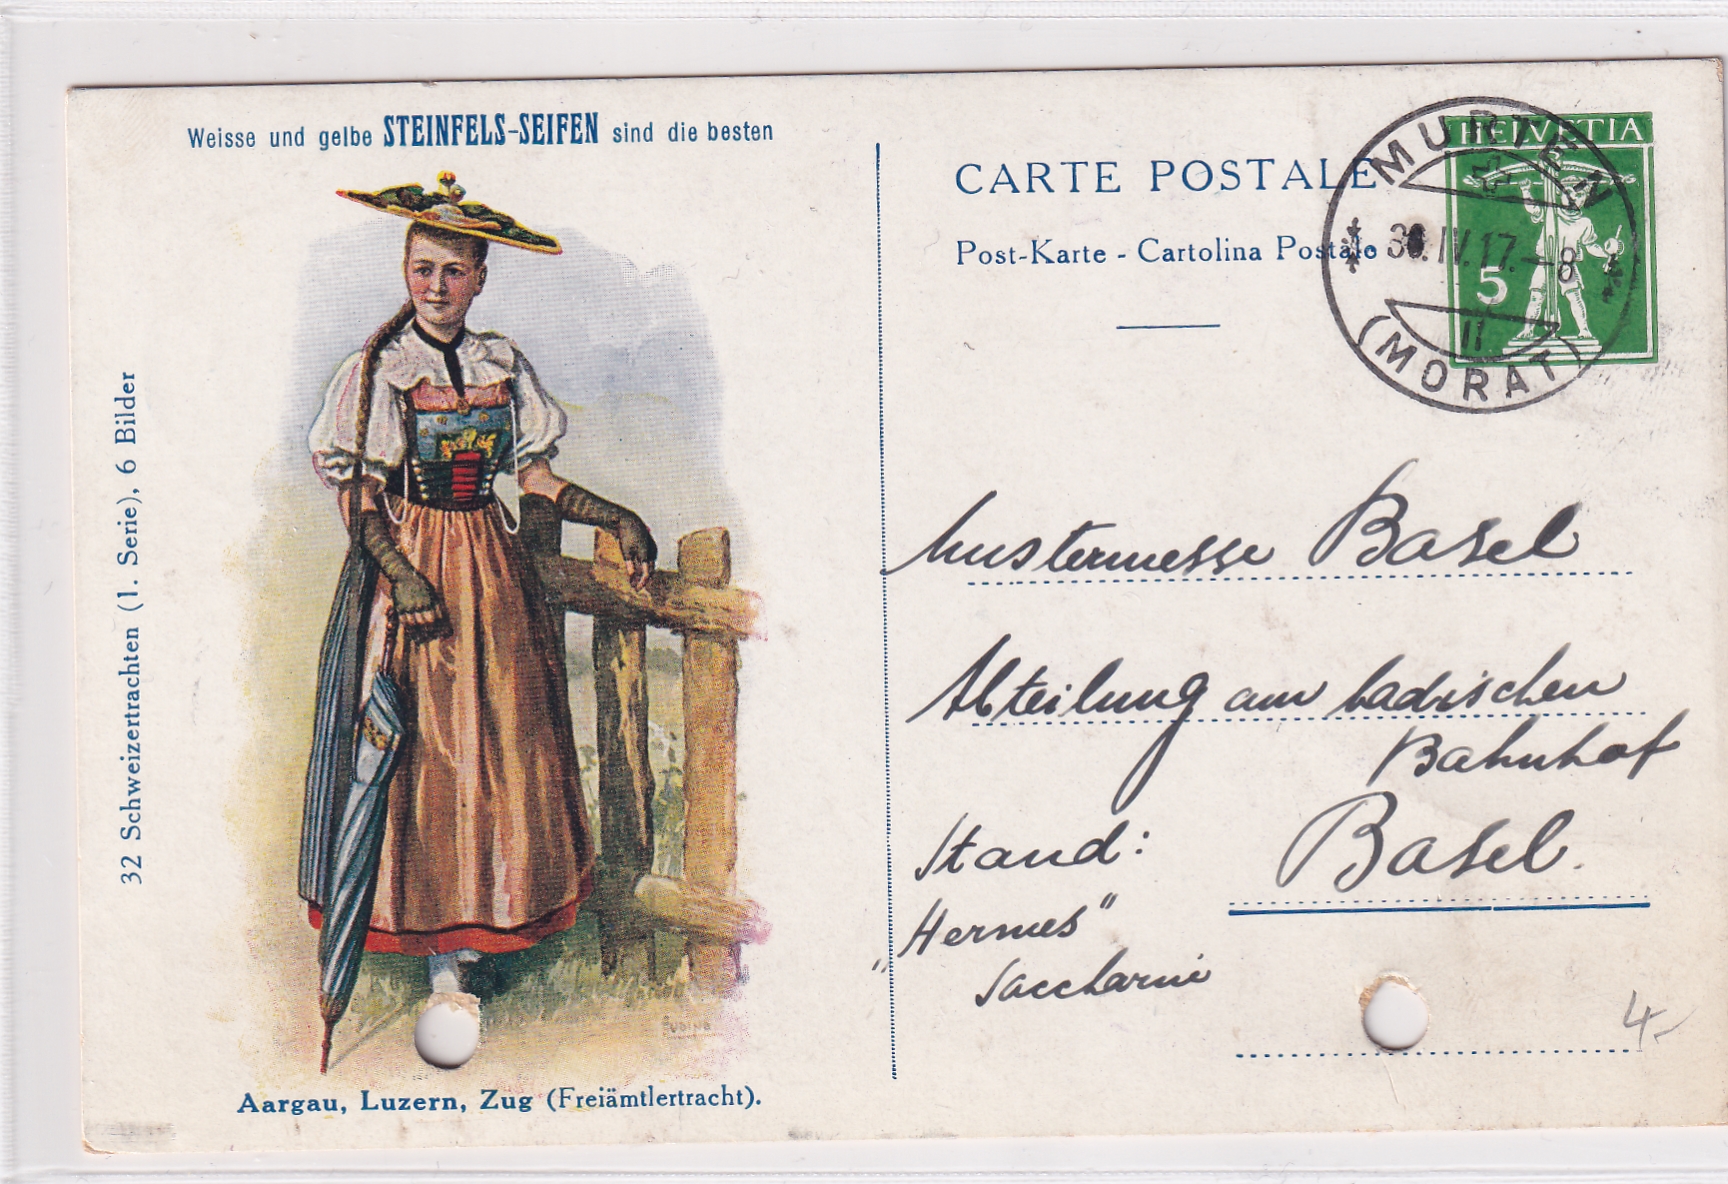 Weisse und gelbe STEINFELS-SEIFEN sind die besten
32 Schweizertrachten (1. Serie), 6 Bilder
Aargau, Luzern, Zug (Freiämtlertracht).
CARTE POSTALE
Post-Karte - Cartolina Postale
HELVETIA
5
MURTEN
30.IV.17.-8
II
(MORAT)
Mustermesse Basel
Abteilung am badischen
Bahnhof
Basel.
Stand:
„Hermes"
Saccharin
4.-